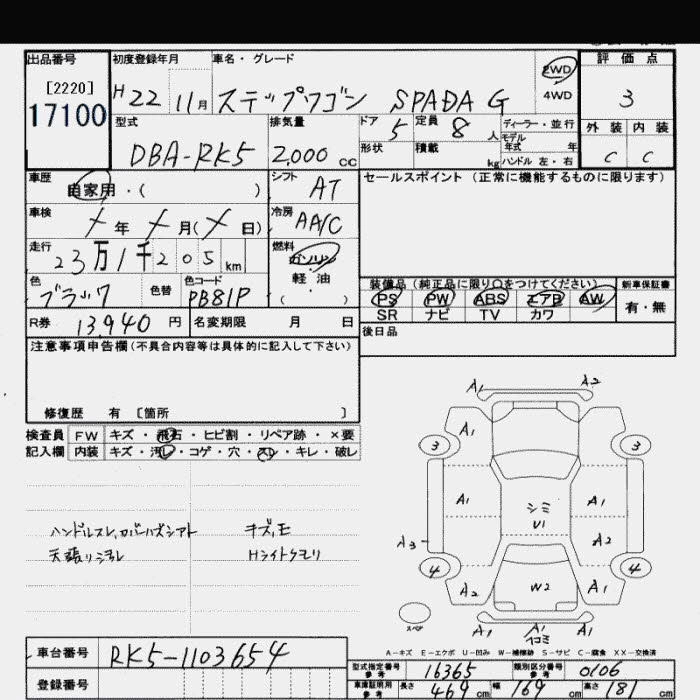 出品番号
[2220]
17100
初度登録年月
H22 11月
車名・グレード
ステップワゴン SPADA G
2WD
4WD
評価点
3
外装 内装
C C
型式
DBA-RK5
排気量
2,000 cc
ドア 5
定員 8 人
形状
積載 kg
ディーラー・並行
モデル年式 年
ハンドル 左・右
車歴
自家用・( )
シフト
AT
セールスポイント (正常に機能するものに限ります)
車検
年 月( 日)
冷房
AA/C
走行
23万1千205km
燃料
ガソリン
軽油
( )
色
ブラック
色替
色コード
PB81P
装備品 (純正品に限り○をつけてください)
新車保証書
PS PW ABS エアB AW
有・無
SR ナビ TV カワ
R券 13,940 円
名変期限 月 日
後日品
注意事項申告欄(不具合内容等は具体的に記入して下さい)
修復歴 有 [箇所 ]
検査員 FW キズ・飛石・ヒビ割・リペア跡・×要
記入欄 内装 キズ・汚レ・コゲ・穴・スレ・キレ・破レ
ハンドルスレ,カバーハズシアト キズ,モ
天張リヨゴレ Hライトクモリ
A1 A2
A1
3 3
A1 シミ A1
U1
A3 A2
4 4
A2 W2 A1
スペア
A1 A1 A1
イコミ
A-キズ E-エクボ U-凹み W-補修跡 S-サビ C-腐食 XX-交換済
車台番号 RK5-1103654
登録番号
型式指定番号 参考 16365 類別区分番号 参考 0106
車庫証明用 参考 長さ 469 cm 幅 169 cm 高さ 181 cm